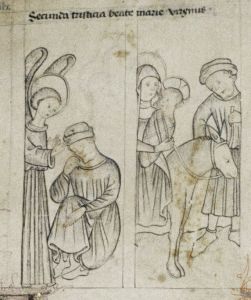 Secunda tristicia beate marie virginis